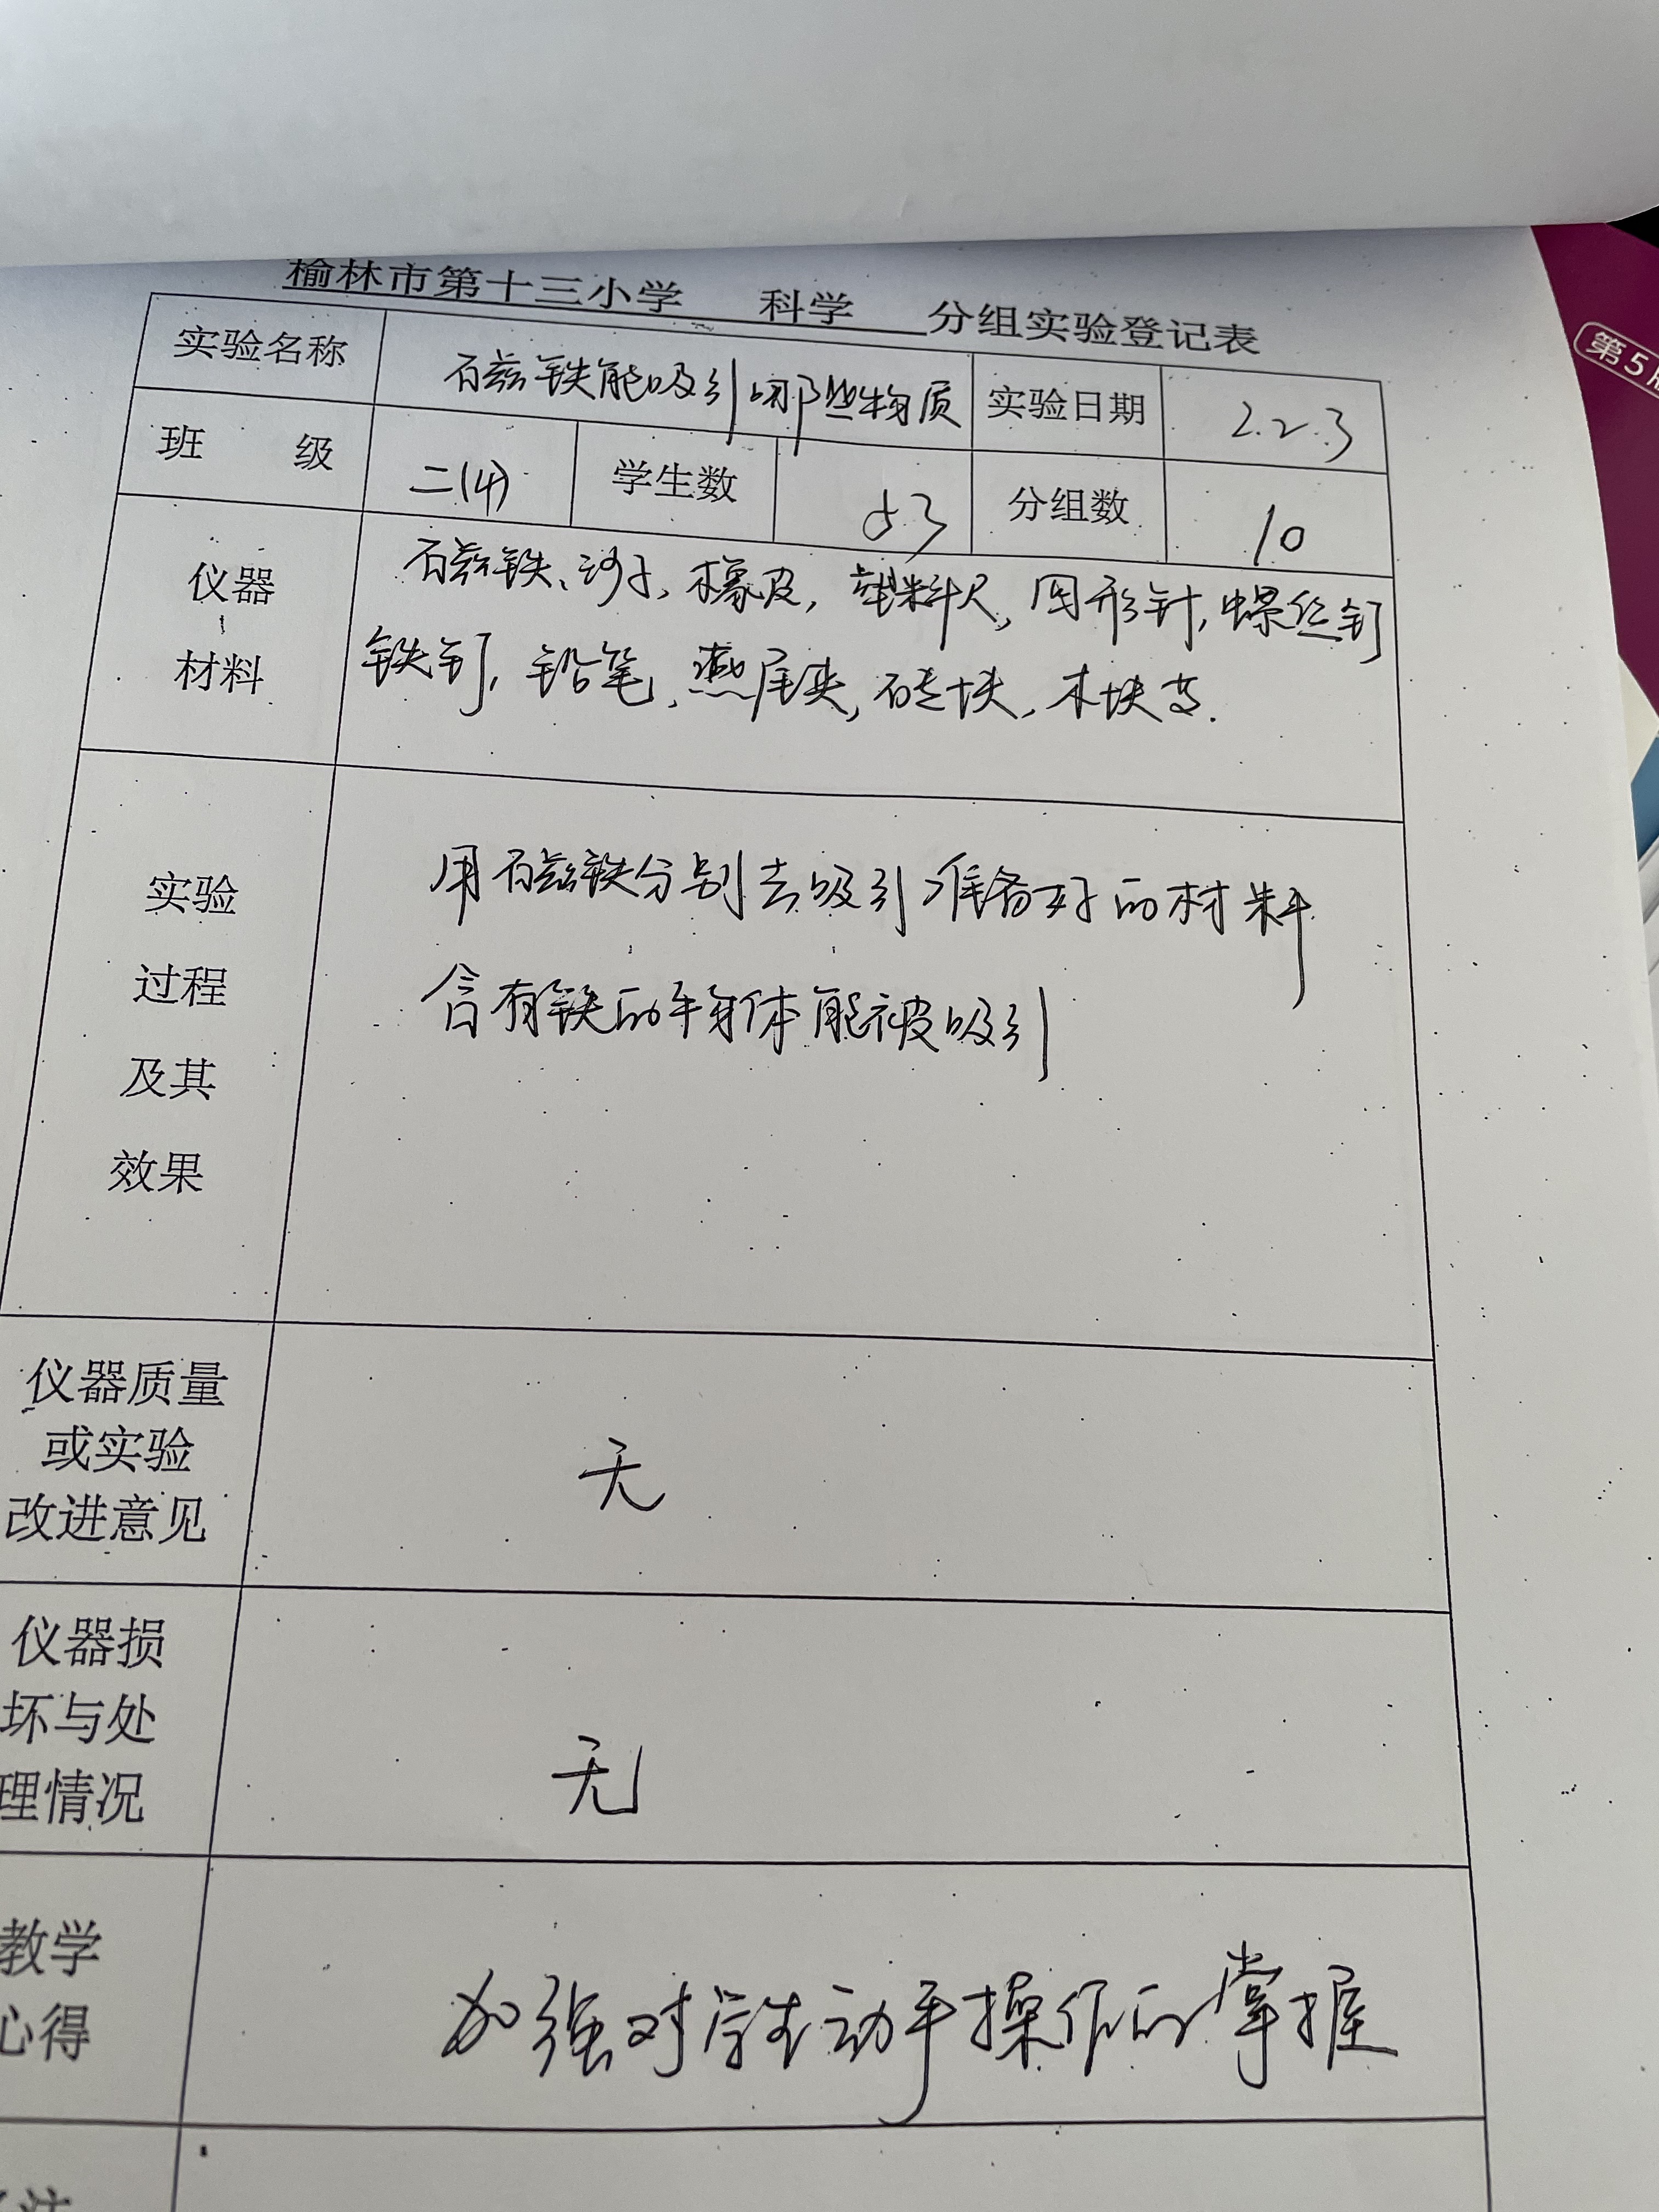 榆林市第十三小学 科学 分组实验登记表
实验名称 石磁铁能吸引哪些物质 实验日期 2.2.3
班 级 二(4) 学生数 53 分组数 10
仪器
材料
石磁铁、沙子, 橡皮, 塑料尺, 回形针, 螺丝钉
铁钉, 铅笔, 燕尾夹, 砖块, 木块等.
实验
过程
及其
效果
用石磁铁分别去吸引准备好的材料
含有铁的物体能被吸引
仪器质量
或实验
改进意见
无
仪器损
坏与处
理情况
无
教学
心得
加强对学生动手操作的掌握
第5版